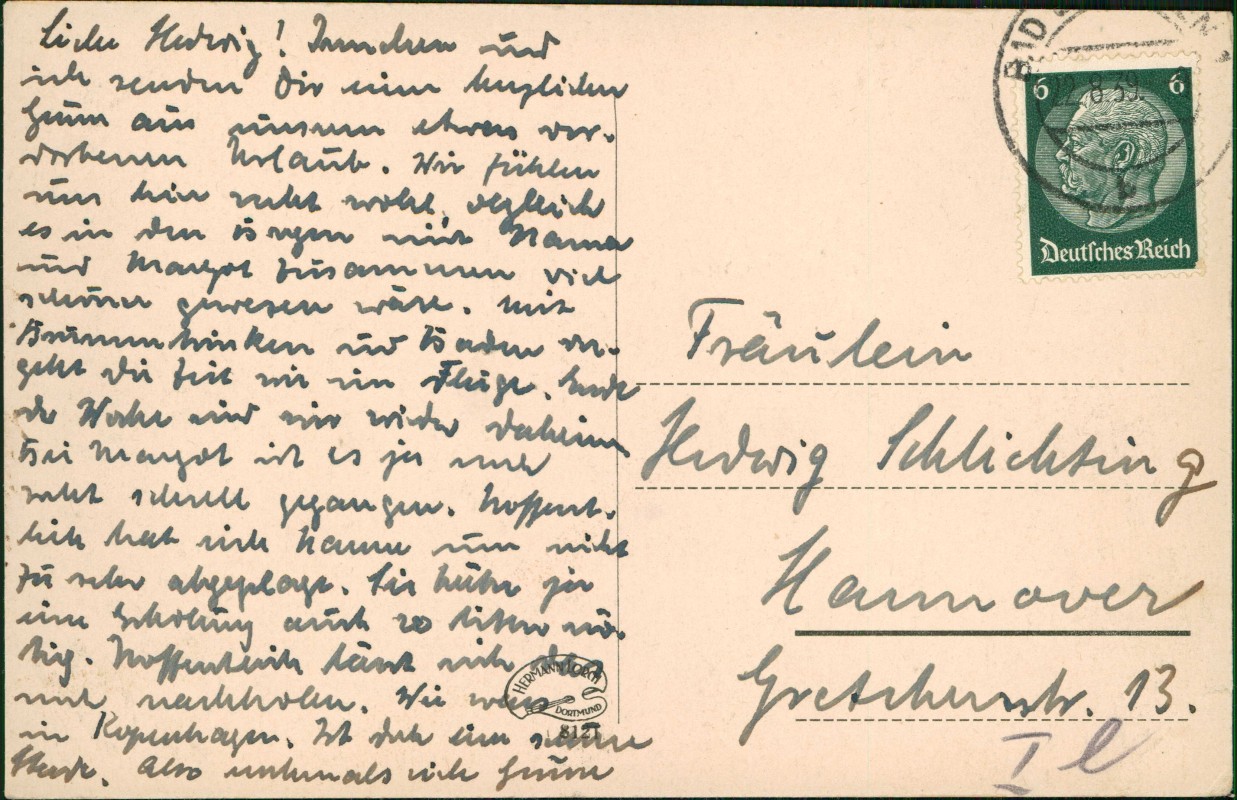 Liebe Hedwig! Innchen und
ich senden Dir einen herzlichen
Gruss aus unserm etwas ver-
dorbenen Urlaub. Wir fühlen
uns hier recht wohl, obgleich
es in den Bergen mit Mama
und Margot zusammen viel
schöner gewesen wäre. Mit
Brunnentrinken und Baden ver-
geht die Zeit wie im Fluge. Ende
der Woche sind wir wieder daheim
Bei Margot ist es ja auch
recht schnell gegangen. Hoffent-
lich hat sich Mama nun nicht
zu sehr abgeplagt. Sie hätte ja
eine Erholung auch so bitter nö-
tig. Hoffentlich lässt sich das
noch nachholen. Wir waren
in Kopenhagen. Ist doch eine schöne
Stadt. Also nochmals viele Grüsse
HERMANN LORCH
DORTMUND
8121
BAD
22.8.39
b
6 6
Deutsches Reich
Fräulein
Hedwig Schlichting
Hannover
Gretchenstr. 13.
I l